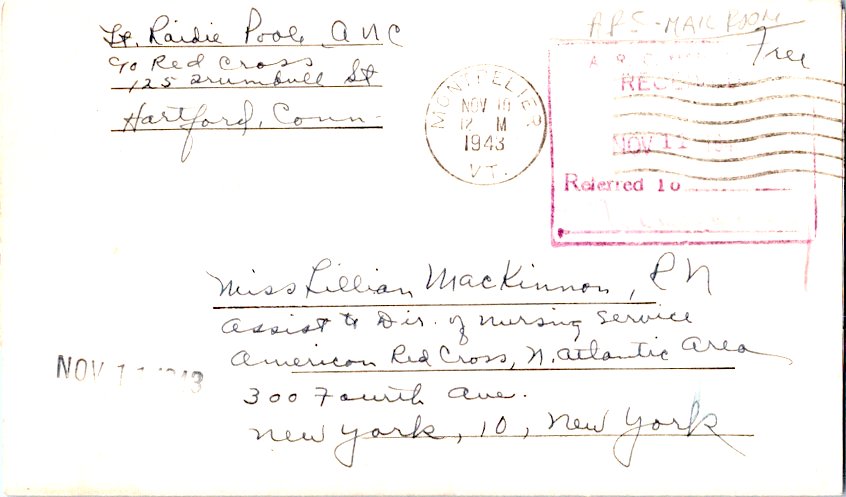 Lt. Raidie Poole, ANC
c/o Red Cross
125 Trumbull St
Hartford, Conn.
MONTPELIER
NOV 10
12 M
1943
VT.
ARS - MAIL ROOM
Free
NOV 11
Referred to
Miss Lillian MacKinnon, RN
Assist to Dir. of Nursing Service
American Red Cross, N. Atlantic Area
300 Fourth Ave.
New York, 10, New York
NOV 11 1943